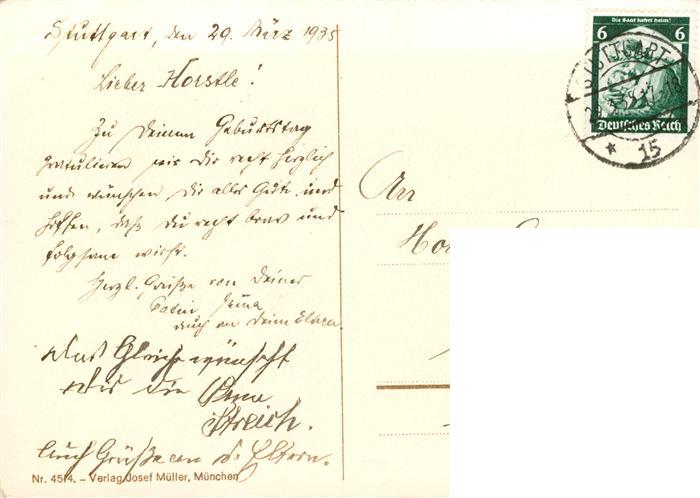 Stuttgart, den 29. März 1935
Lieber Horstle!
Zu Deinem Geburtstag
gratulieren wir Dir recht herzlich
und wünschen Dir alles Gute und
hoffen, daß Du recht brav und
folgsam wirst.
Herzl. Grüße von Deiner
auch an Deine Eltern
Das Gleiche wünscht
Dir die
Streich.
Auch Grüße an d. Eltern.
Nr. 4514. – Verlag Josef Müller, München
Die Saar kehrt heim!
6 6
Deutsches Reich
STUTTGART
15
An